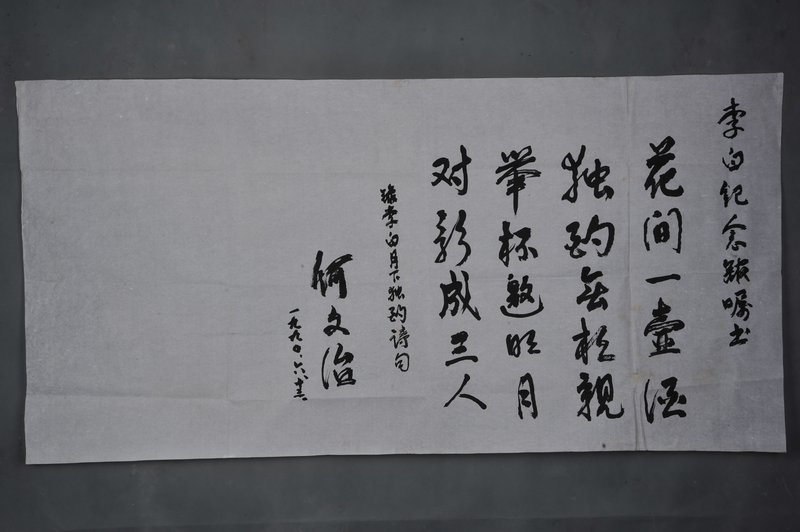 李白纪念馆嘱书
花间一壶酒
独酌无相亲
举杯邀明月
对影成三人
李白月下独酌诗句
何文治
一九九〇.六.